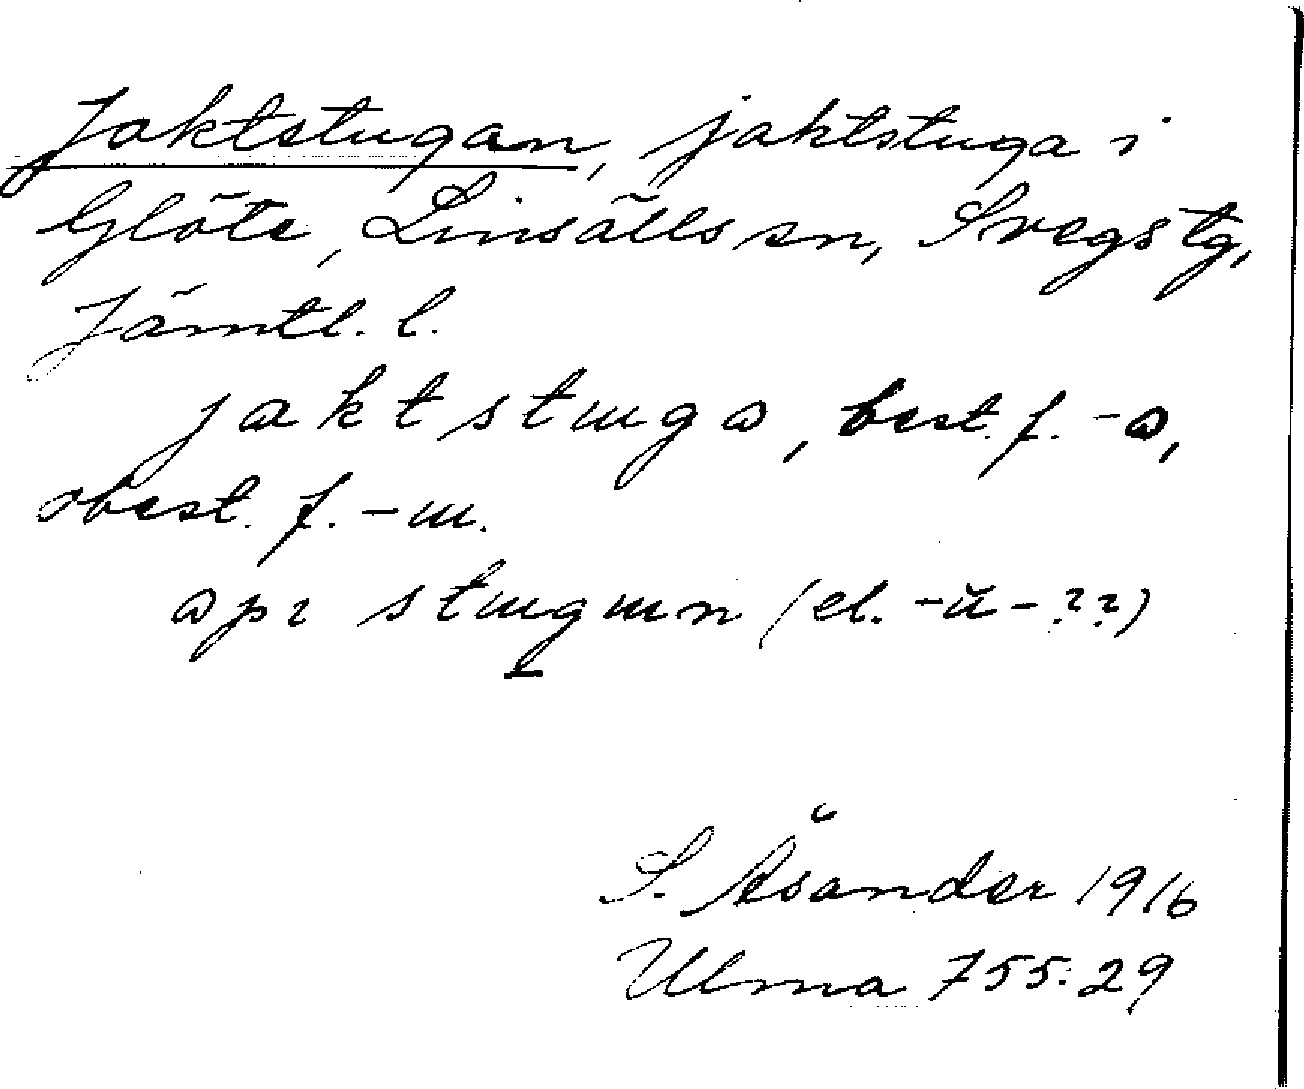 Jaktstugan, jaktstuga i
Glöte, Linsälls sn, Svegs tg,
Jämtl. l.
jaktstuga, best. f. -a,
obest. f. -u.
stugun (el. -ŭ- ??)
S. Åsander 1916
Ulma 755:29